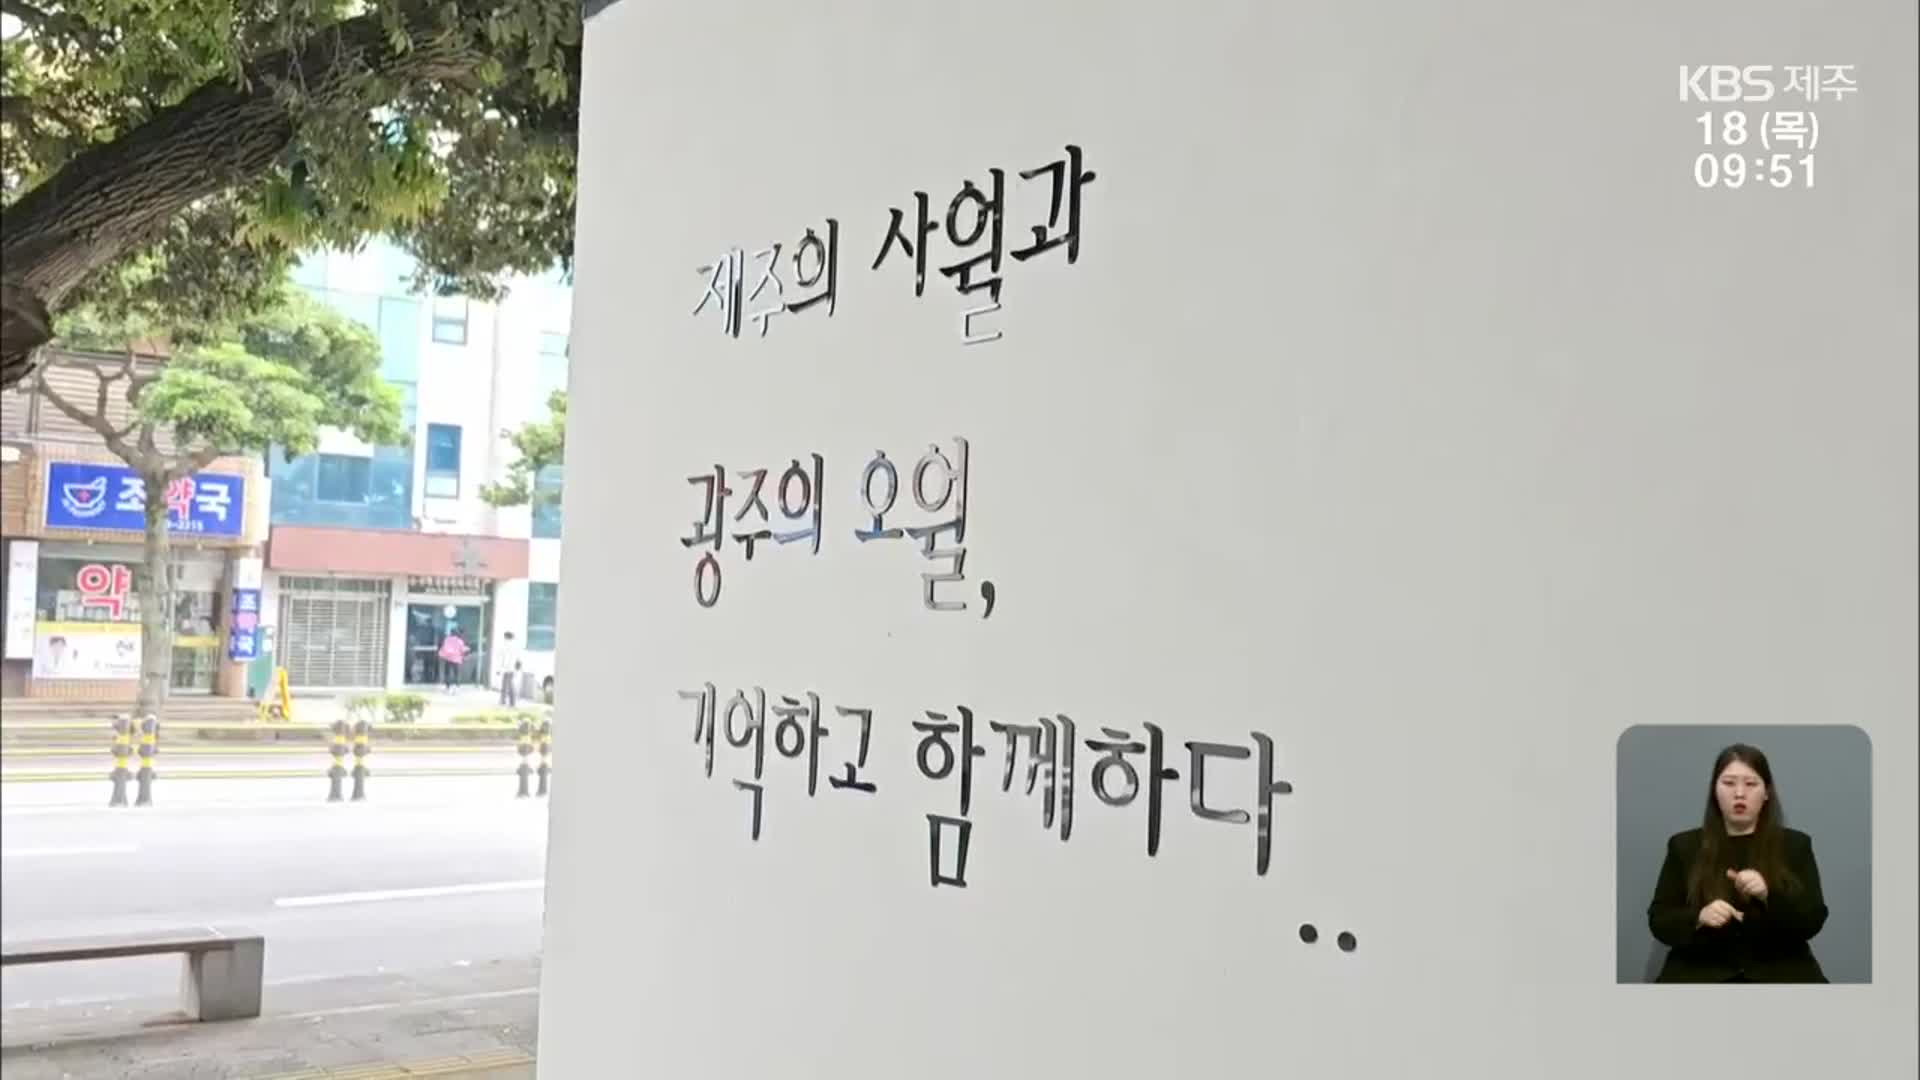 KBS 제주
18 (목)
09:51
제주의 사월과
광주의 오월,
기억하고 함께하다
..
조약국
약
조약국